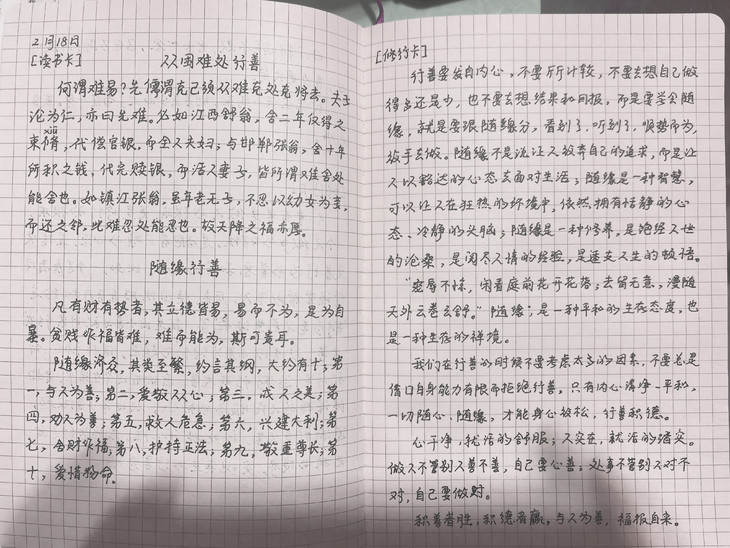 2月18日
[读书卡] 从困难处行善
何谓难易?先儒谓克己须从难克处克将去。夫子
论为仁,亦曰先难。必如江西舒翁,舍二年仅得之
束脩,代偿官银,而全人夫妇;与邯郸张翁,舍十年
所积之钱,代完赎银,而活人妻子,皆所谓难舍处
能舍也。如镇江靳翁,虽年老无子,不忍以幼女为妾,
而还之邻,此难忍处能忍也。故天降之福亦厚。
随缘行善
凡有财有势者,其立德皆易,易而不为,是为自
暴。贫贱作福皆难,难而能为,斯可贵耳。
随缘济众,其类至繁,约言其纲,大约有十:第
一,与人为善;第二,爱敬存心;第三,成人之美;第
四,劝人为善;第五,救人危急;第六,兴建大利;第
七,舍财作福;第八,护持正法;第九,敬重尊长;第
十,爱惜物命。
[修行卡]
行善要发自内心,不要斤斤计较,不要去想自己做
得多还是少,也不要去想结果和回报,而是要学会随
缘,就是要跟随缘分,看到了,听到了,顺势而为,
伸手去做。随缘不是说让人放弃自己的追求,而是让
人以豁达的心态去面对生活;随缘是一种智慧,
可以让人在狂热的环境中,依然拥有恬静的心
态、冷静的头脑;随缘是一种修养,是饱经人世
的沧桑,是阅尽人情的经验,是透支人生的收语。
“宠辱不惊,闲看庭前花开花落;去留无意,漫随
天外云卷云舒。”随缘,是一种平和的生存态度,也
是一种生存的禅境。
我们在行善的时候不要考虑太多的因素,不要总是
借口自身能力有限而拒绝行善,只有内心清净、平和,
一切随心、随缘,才能身心放松,行善积德。
心干净,就活的舒服;人实在,就活的踏实。
做人不管别人善不善,自己要心善;处事不管别人对不
对,自己要做对。
积善者胜,积德者赢,与人为善,福报自来。